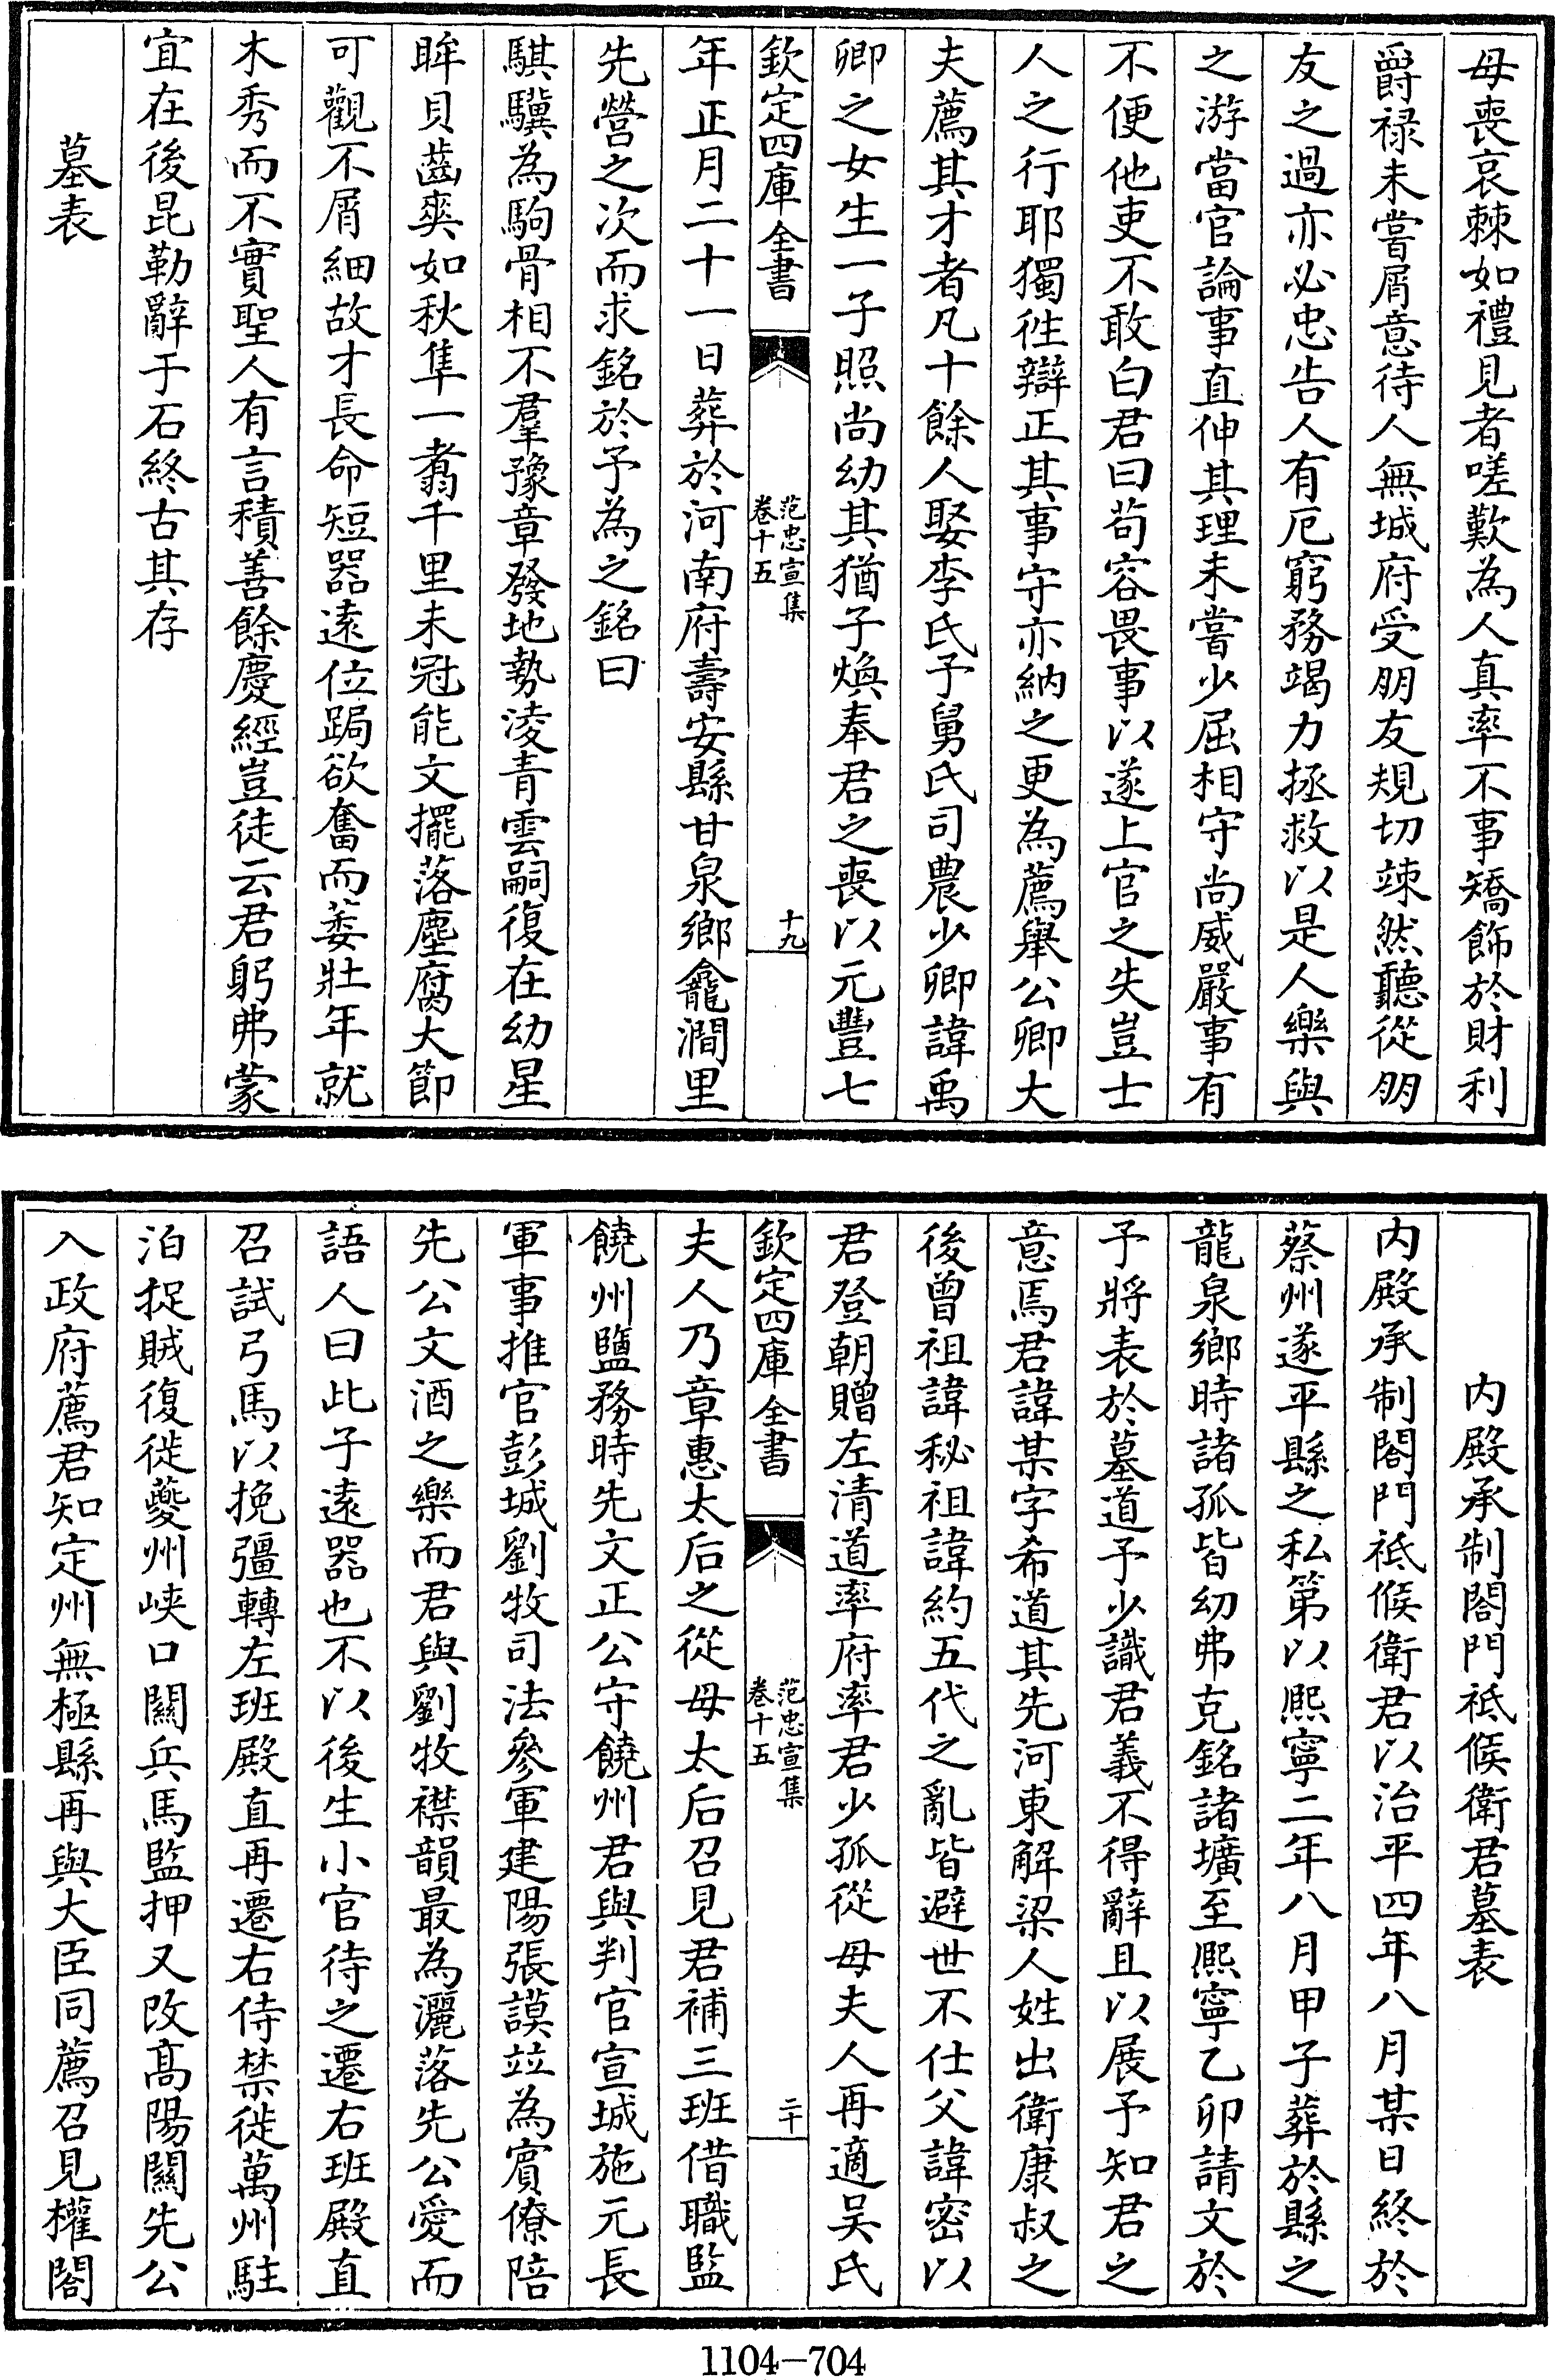 母喪哀棘如禮見者嗟歎為人真率不事矯飾於財利
爵禄未嘗屑意待人無城府受朋友規切竦然聽從朋
友之過亦必忠告人有厄窮務竭力拯救以是人樂與
之游當官論事直伸其理未嘗少屈相守尚威嚴事有
不便他吏不敢白君曰苟容畏事以遂上官之失豈士
人之行耶獨徃辯正其事守亦納之更為薦舉公卿大
夫薦其才者凡十餘人娶李氏予舅氏司農少卿諱禹
卿之女生一子照尚幼其猶子焕奉君之喪以元豐七
欽定四庫全書
范忠宣集
卷十五
十九
年正月二十一日葬於河南府壽安縣甘泉鄉龕澗里
先營之次而求銘於予為之銘曰
騏驥為駒骨相不羣豫章發地勢淩青雲嗣復在幼星
眸貝齒爽如秋隼一翥千里未冠能文擺落塵腐大節
可觀不屑細故才長命短器遠位跼欲奮而萎壯年就
木秀而不實聖人有言積善餘慶經豈徒云君躬弗蒙
宜在後昆勒辭于石終古其存
墓表
内殿承制閤門祗候衛君墓表
内殿承制閤門祗候衛君以治平四年八月某日終於
蔡州遂平縣之私第以熈寧二年八月甲子葬於縣之
龍泉鄉時諸孤皆幼弗克銘諸壙至熈寧乙卯請文於
予將表於墓道予少識君義不得辭且以展予知君之
意焉君諱某字希道其先河東解梁人姓出衛康叔之
後曾祖諱秘祖諱約五代之亂皆避世不仕父諱密以
君登朝贈左清道率府率君少孤從母夫人再適吴氏
欽定四庫全書
范忠宣集
卷十五
二十
夫人乃章惠太后之從母太后召見君補三班借職監
饒州鹽務時先文正公守饒州君與判官宣城施元長
軍事推官彭城劉牧司法參軍建陽張謨竝為賓僚陪
先公文酒之樂而君與劉牧襟韻最為灑落先公愛而
語人曰此子遠器也不以後生小官待之遷右班殿直
召試弓馬以挽彊轉左班殿直再遷右侍禁徙萬州駐
泊捉賊復徙夔州峽口關兵馬監押又改髙陽關先公
入政府薦君知定州無極縣再與大臣同薦召見權閤
1104-704